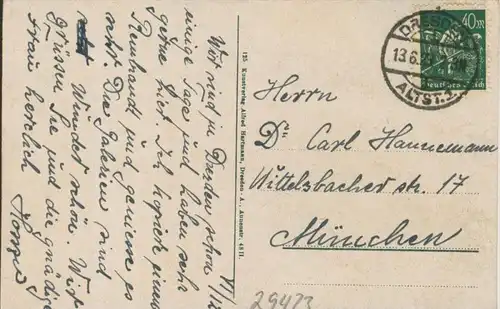 VI/12
Wir sind in Dresden schon
einige Tage und haben sehr
gerne hier. Ich kopiere einen
Rembrandt und geniesse es
sehr. Die Galerien sind
Wunder schön. Wir
grüssen Sie und die gnädige
Frau herzlich
125 Kunstverlag Alfred Hartmann, Dresden-A., Altmarkt
DRESDEN
13.6.23
ALTST.
40 M
Deutsches Reich
Herrn
Dr. Carl Hannemann
Wittelsbacher str. 17
München
29423